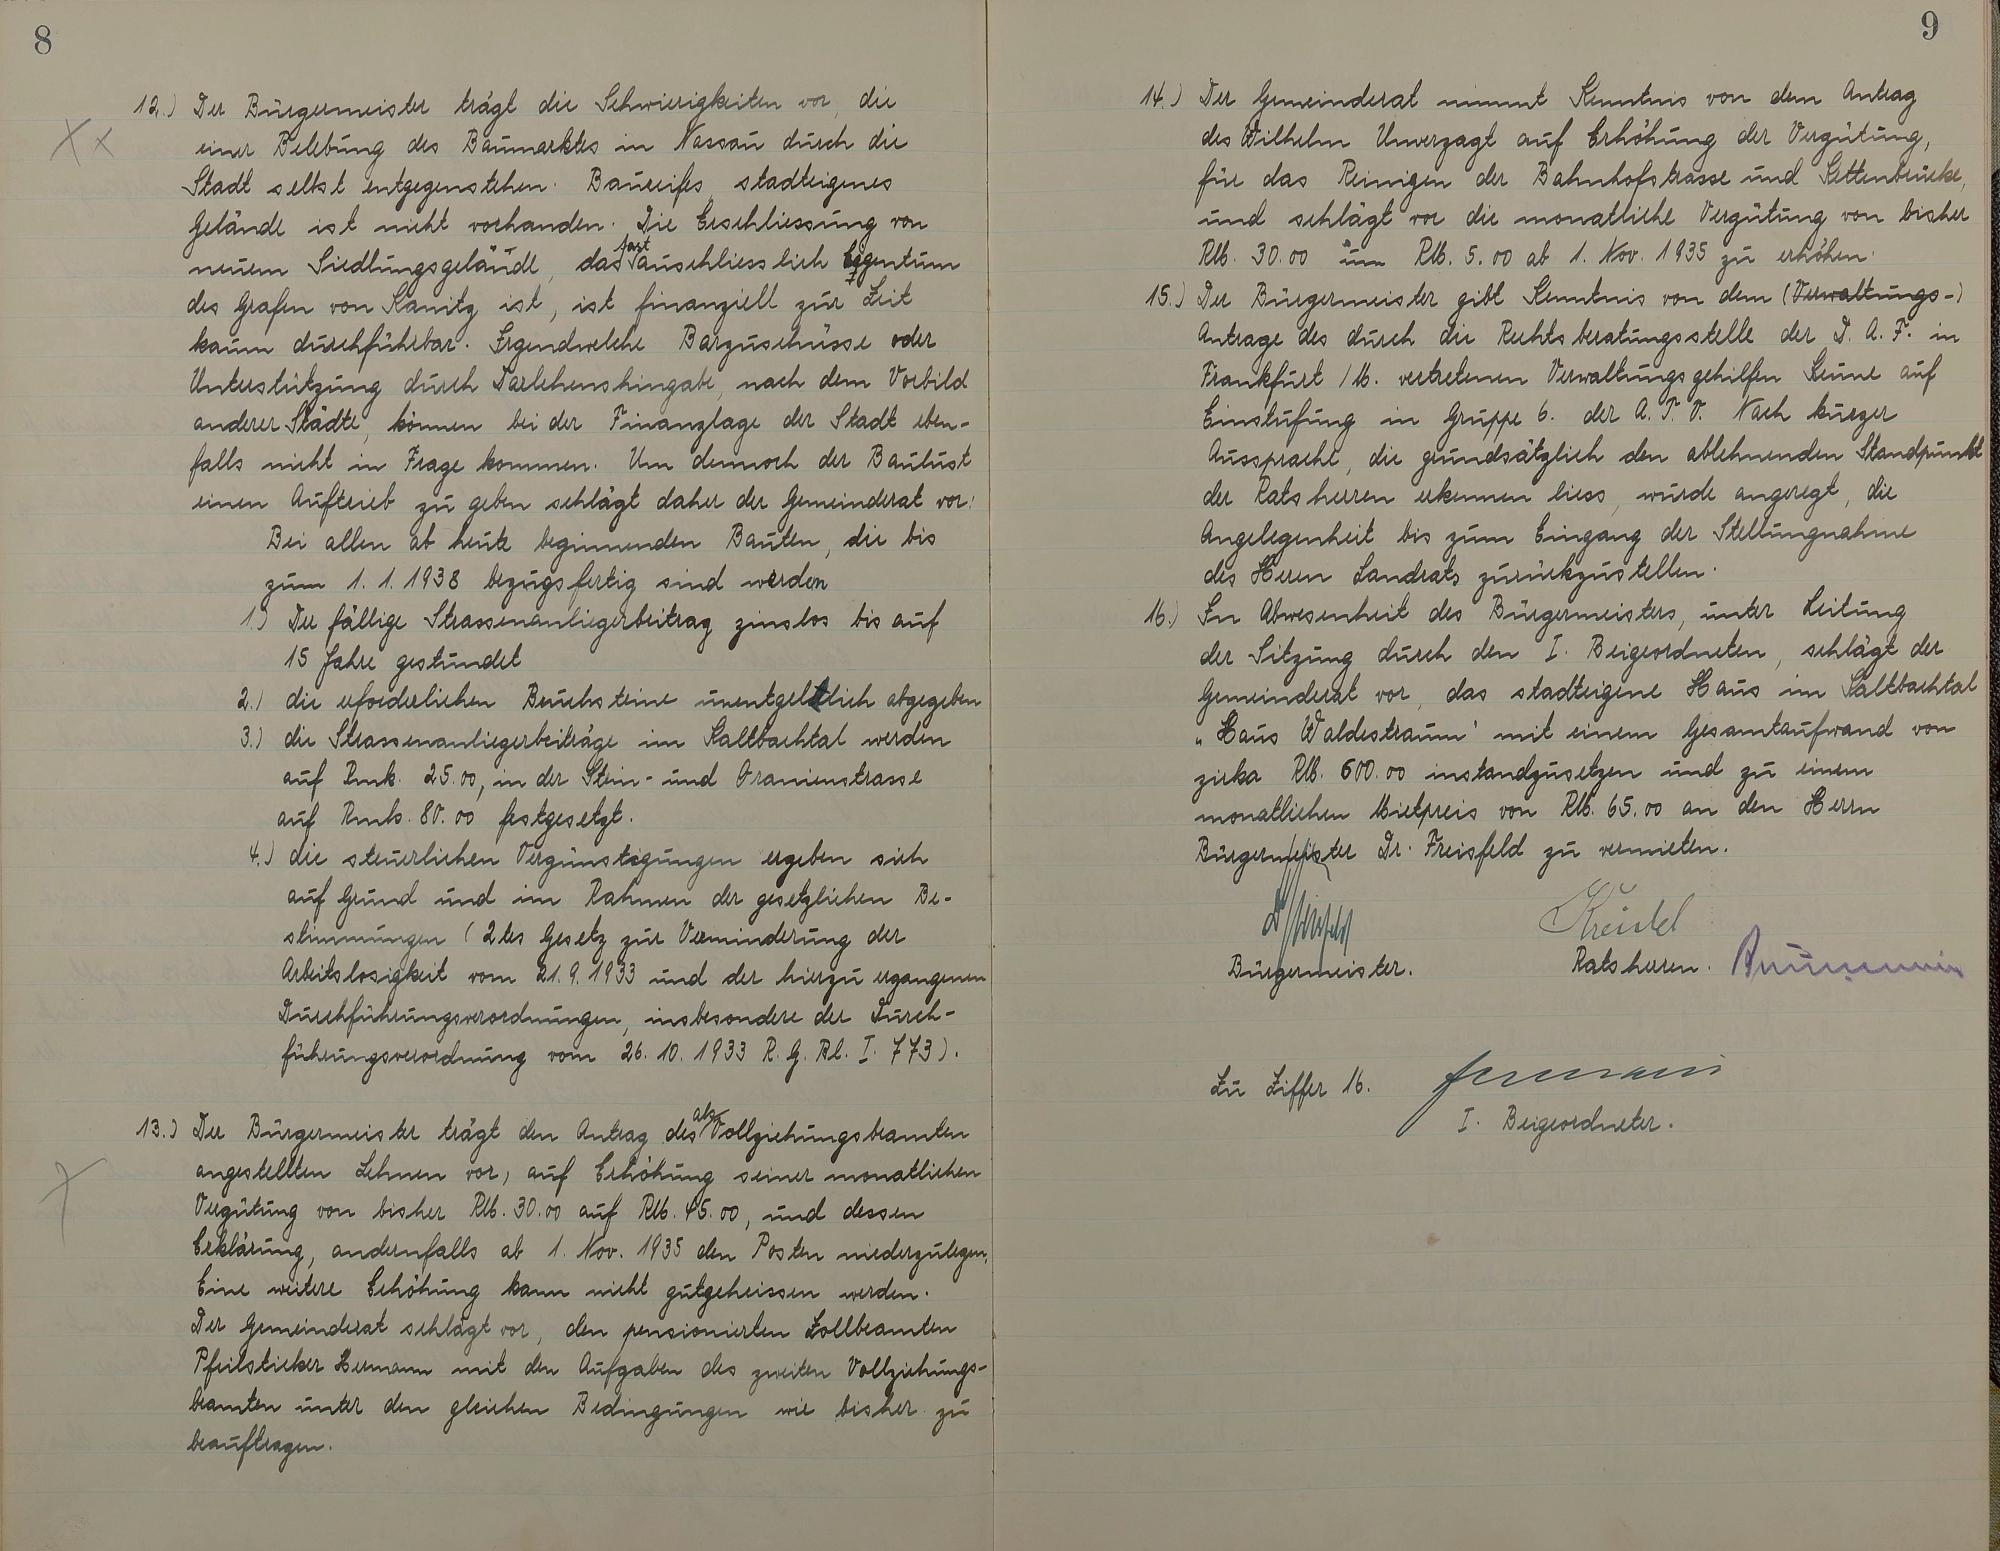 8
12.) Der Bürgermeister trägt die Schwierigkeiten vor, die
einer Belebung des Baumarktes in Nassau durch die
Stadt selbst entgegenstehen. Baureifes, stadteigenes
Gelände ist nicht vorhanden. Die Erschliessung von
neuem Siedlungsgelände, das fast auschliesslich Eigentum
des Grafen von Kanitz ist, ist finanziell zur Zeit
kaum durchführbar. Irgendwelche Barzuschüsse oder
Unterstützung durch Darlehenshingabe, nach dem Vorbild
anderer Städte, können bei der Finanzlage der Stadt eben-
falls nicht in Frage kommen. Um dennoch der Baulust
einen Auftrieb zu geben schlägt daher der Gemeinderat vor:
Bei allen ab heute beginnenden Bauten, die bis
zum 1.1.1938 bezugsfertig sind werden
1.) Der fällige Strassenanliegerbeitrag zinslos bis auf
15 Jahre gestundet
2.) die erforderlichen Bruchsteine unentgeltlich abgegeben
3.) die Strassenanliegerbeiträge im Kaltbachtal werden
auf Rmk. 25.00, in der Stein- und Oranienstrasse
auf Rmk. 80.00 festgesetzt.
4.) die steuerlichen Vergünstigungen ergeben sich
auf Grund und im Rahmen der gesetzlichen Be-
stimmungen (2tes Gesetz zur Verminderung der
Arbeitslosigkeit vom 21.9.1933 und der hierzu ergangenen
Durchführungsverordnungen, insbesondere der Durch-
führungsverordnung vom 26.10.1933 R.G.Bl. I. 773).
13.) Der Bürgermeister trägt den Antrag des als Vollziehungsbeamten
angestellten Lehnen vor, auf Erhöhung seiner monatlichen
Vergütung von bisher RM. 30.00 auf RM. 45.00, und dessen
Erklärung, andernfalls ab 1. Nov. 1935 den Posten niederzulegen.
Eine weitere Erhöhung kann nicht gutgeheissen werden.
Der Gemeinderat schlägt vor, den pensionierten Zollbeamten
Pfeilsticker Hermann mit den Aufgaben des zweiten Vollziehungs-
beamten unter den gleichen Bedingungen wie bisher zu
beauftragen.
9
14.) Der Gemeinderat nimmt Kenntnis von dem Antrag
des Wilhelm Unverzagt auf Erhöhung der Vergütung,
für das Reinigen der Bahnhofstrasse und Kettenbrücke,
und schlägt vor die monatliche Vergütung von bisher
RM. 30.00 um RM. 5.00 ab 1. Nov. 1935 zu erhöhen.
15.) Der Bürgermeister gibt Kenntnis von dem (Verwaltungs-)
Antrage des durch die Rechtsberatungsstelle der D.A.F. in
Frankfurt / M. vertretenen Verwaltungsgehilfen Keune auf
Einstufung in Gruppe 6. der A.T.V. Nach kurzer
Aussprache, die grundsätzlich den ablehnenden Standpunkt
der Ratsherren erkennen liess, wurde angeregt, die
Angelegenheit bis zum Eingang der Stellungnahme
des Herrn Landrats zurückzustellen.
16.) In Abwesenheit des Bürgermeisters, unter Leitung
der Sitzung durch den I. Beigeordneten, schlägt der
Gemeinderat vor, das stadteigene Haus im Kaltbachtal
„Haus Waldestraum" mit einem Gesamtaufwand von
zirka RM. 600.00 instandzusetzen und zu einem
monatlichen Mietpreis von RM. 65.00 an den Herrn
Bürgermeister Dr. Freisfeld zu vermieten.
Bürgermeister.
Ratsherren.
Zu Ziffer 16.
I. Beigeordneter.